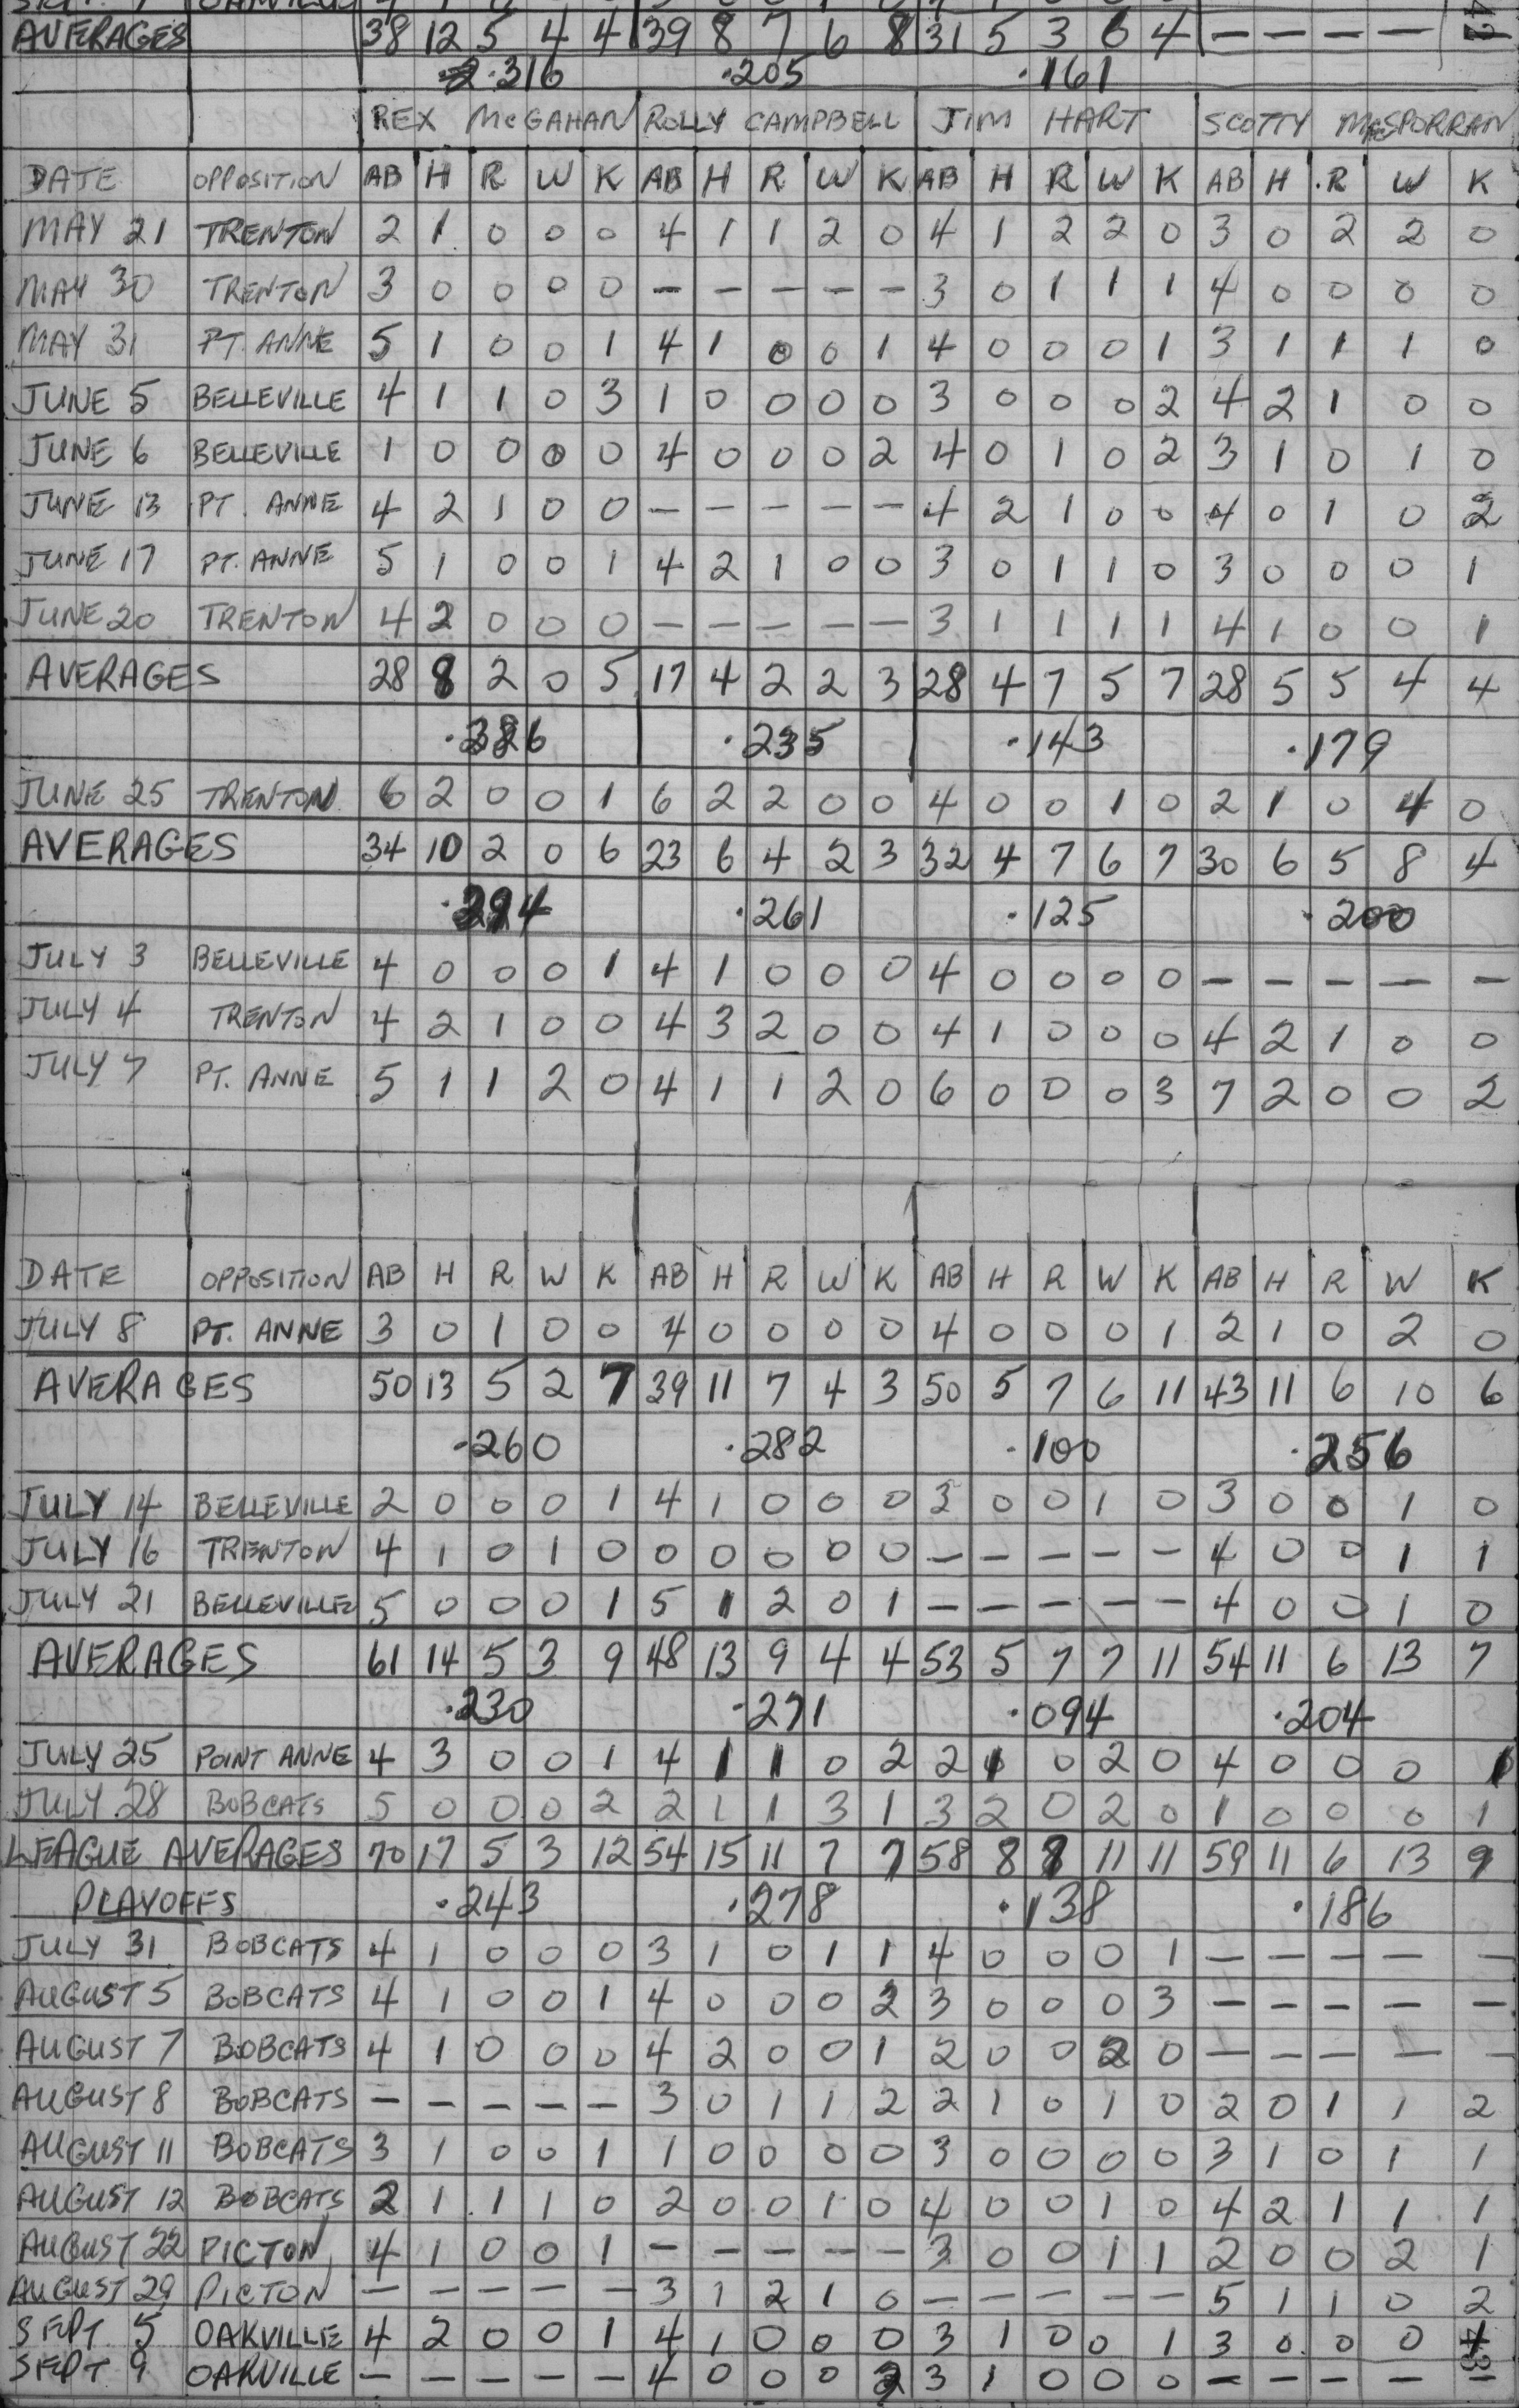 AVERAGES 38 12 5 4 4 39 8 7 6 8 31 5 3 6 4 — — — —
.316 .205 .161
REX McGAHAN ROLLY CAMPBELL JIM HART SCOTTY McSPORRAN
DATE OPPOSITION AB H R W K AB H R W K AB H R W K AB H R W K
MAY 21 TRENTON 2 1 0 0 0 4 1 1 2 0 4 1 2 2 0 3 0 2 2 0
MAY 30 TRENTON 3 0 0 0 0 — — — — — 3 0 1 1 1 4 0 0 0 0
MAY 31 PT. ANNE 5 1 0 0 1 4 1 0 0 1 4 0 0 0 1 3 1 1 1 0
JUNE 5 BELLEVILLE 4 1 1 0 3 1 0 0 0 0 3 0 0 0 2 4 2 1 0 0
JUNE 6 BELLEVILLE 1 0 0 0 0 4 0 0 0 2 4 0 1 0 2 3 1 0 1 0
JUNE 13 PT. ANNE 4 2 1 0 0 — — — — — 4 2 1 0 0 4 0 1 0 2
JUNE 17 PT. ANNE 5 1 0 0 1 4 2 1 0 0 3 0 1 1 0 3 0 0 0 1
JUNE 20 TRENTON 4 2 0 0 0 — — — — — 3 1 1 1 1 4 1 0 0 1
AVERAGES 28 8 2 0 5 17 4 2 2 3 28 4 7 5 7 28 5 5 4 4
.235 .143 .179
JUNE 25 TRENTON 6 2 0 0 1 6 2 2 0 0 4 0 0 1 0 2 1 0 4 0
AVERAGES 34 10 2 0 6 23 6 4 2 3 32 4 7 6 7 30 6 5 8 4
.294 .261 .125 .200
JULY 3 BELLEVILLE 4 0 0 0 1 4 1 0 0 0 4 0 0 0 0 — — — — —
JULY 4 TRENTON 4 2 1 0 0 4 3 2 0 0 4 1 0 0 0 4 2 1 0 0
JULY 7 PT. ANNE 5 1 1 2 0 4 1 1 2 0 6 0 0 0 3 7 2 0 0 2
DATE OPPOSITION AB H R W K AB H R W K AB H R W K AB H R W K
JULY 8 PT. ANNE 3 0 1 0 0 4 0 0 0 0 4 0 0 0 1 2 1 0 2 0
AVERAGES 50 13 5 2 7 39 11 7 4 3 50 5 7 6 11 43 11 6 10 6
.260 .282 .100 .256
JULY 14 BELLEVILLE 2 0 0 0 1 4 1 0 0 0 3 0 0 1 0 3 0 0 1 0
JULY 16 TRENTON 4 1 0 1 0 0 0 0 0 0 — — — — — 4 0 0 1 1
JULY 21 BELLEVILLE 5 0 0 0 1 5 1 2 0 1 — — — — — 4 0 0 1 0
AVERAGES 61 14 5 3 9 48 13 9 4 4 53 5 7 7 11 54 11 6 13 7
.230 .271 .094 .204
JULY 25 POINT ANNE 4 3 0 0 1 4 1 1 0 2 2 1 0 2 0 4 0 0 0 1
JULY 28 BOBCATS 5 0 0 0 2 2 1 1 3 1 3 2 0 2 0 1 0 0 0 1
LEAGUE AVERAGES 70 17 5 3 12 54 15 11 7 7 58 8 8 11 11 59 11 6 13 9
PLAYOFFS .243 .278 .138 .186
JULY 31 BOBCATS 4 1 0 0 0 3 1 0 1 1 4 0 0 0 1 — — — — —
AUGUST 5 BOBCATS 4 1 0 0 1 4 0 0 0 2 3 0 0 0 3 — — — — —
AUGUST 7 BOBCATS 4 1 0 0 0 4 2 0 0 1 2 0 0 2 0 — — — — —
AUGUST 8 BOBCATS — — — — — 3 0 1 1 2 2 1 0 1 0 2 0 1 1 2
AUGUST 11 BOBCATS 3 1 0 0 1 1 0 0 0 0 3 0 0 0 0 3 1 0 1 1
AUGUST 12 BOBCATS 2 1 1 1 0 2 0 0 1 0 4 0 0 1 0 4 2 1 1 1
AUGUST 22 PICTON 4 1 0 0 1 — — — — — 3 0 0 1 1 2 0 0 2 1
AUGUST 29 PICTON — — — — — 3 1 2 1 0 — — — — — 5 1 1 0 2
SEPT. 5 OAKVILLE 4 2 0 0 1 4 1 0 0 0 3 1 0 0 1 3 0 0 0 1
SEPT 9 OAKVILLE — — — — — 4 0 0 0 3 1 0 0 0 — — — —
43